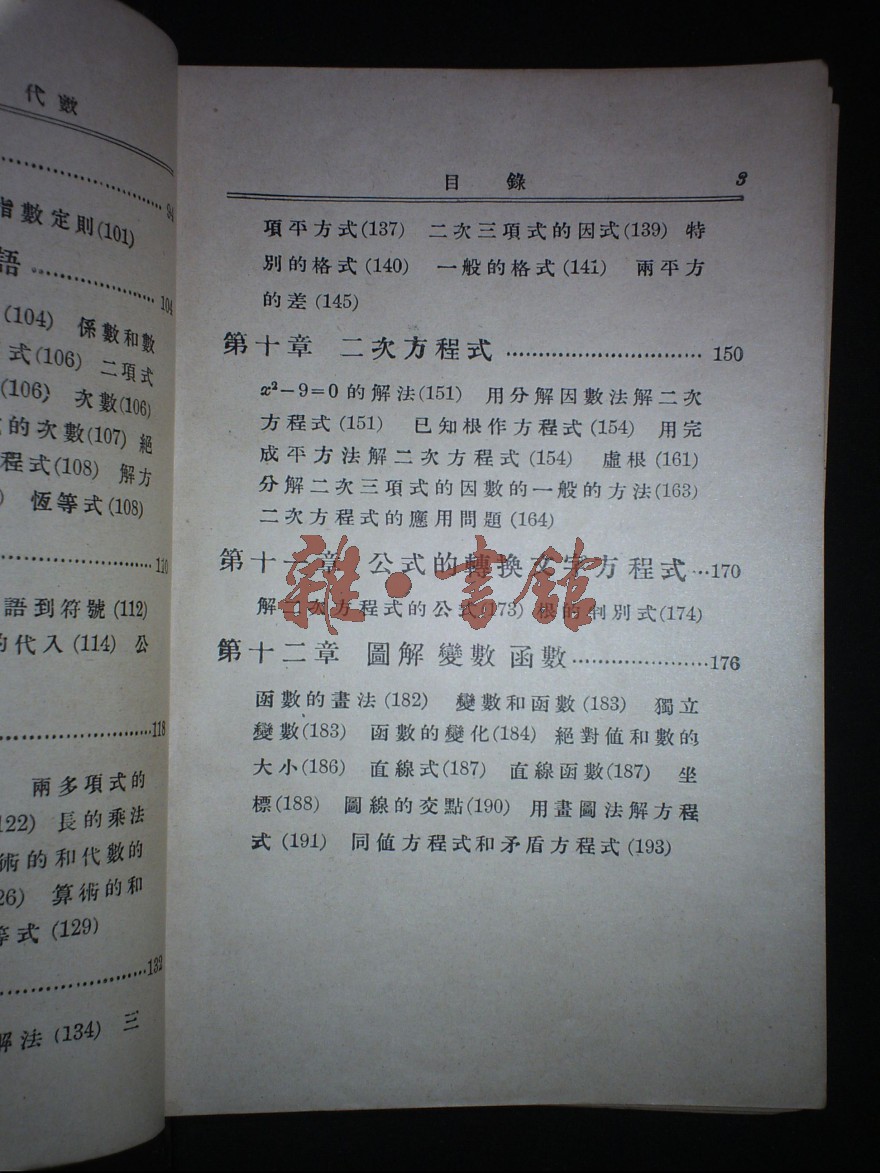 代數
94
指數定則(101)
語 104
(104) 係數和數
式(106) 二項式
(106) 次數(106)
的次數(107) 絕
程式(108) 解方
恆等式(108)
110
語到符號(112)
的代入(114) 公
118
兩多項式的
122) 長的乘法
術的和代數的
26) 算術的和
等式(129)
132
解法(134) 三
目錄 3
項平方式(137) 二次三項式的因式(139) 特
別的格式(140) 一般的格式(141) 兩平方
的差(145)
第十章 二次方程式 150
x²−9=0的解法(151) 用分解因數法解二次
方程式(151) 已知根作方程式(154) 用完
成平方法解二次方程式(154) 虛根(161)
分解二次三項式的因數的一般的方法(163)
二次方程式的應用問題(164)
第十一章 公式的轉換文字方程式 170
解二次方程式的公式(173) 根的判別式(174)
雜·書館
第十二章 圖解 變數 函數 176
函數的畫法(182) 變數和函數(183) 獨立
變數(183) 函數的變化(184) 絕對值和數的
大小(186) 直線式(187) 直線函數(187) 坐
標(188) 圖線的交點(190) 用畫圖法解方程
式(191) 同值方程式和矛盾方程式(193)